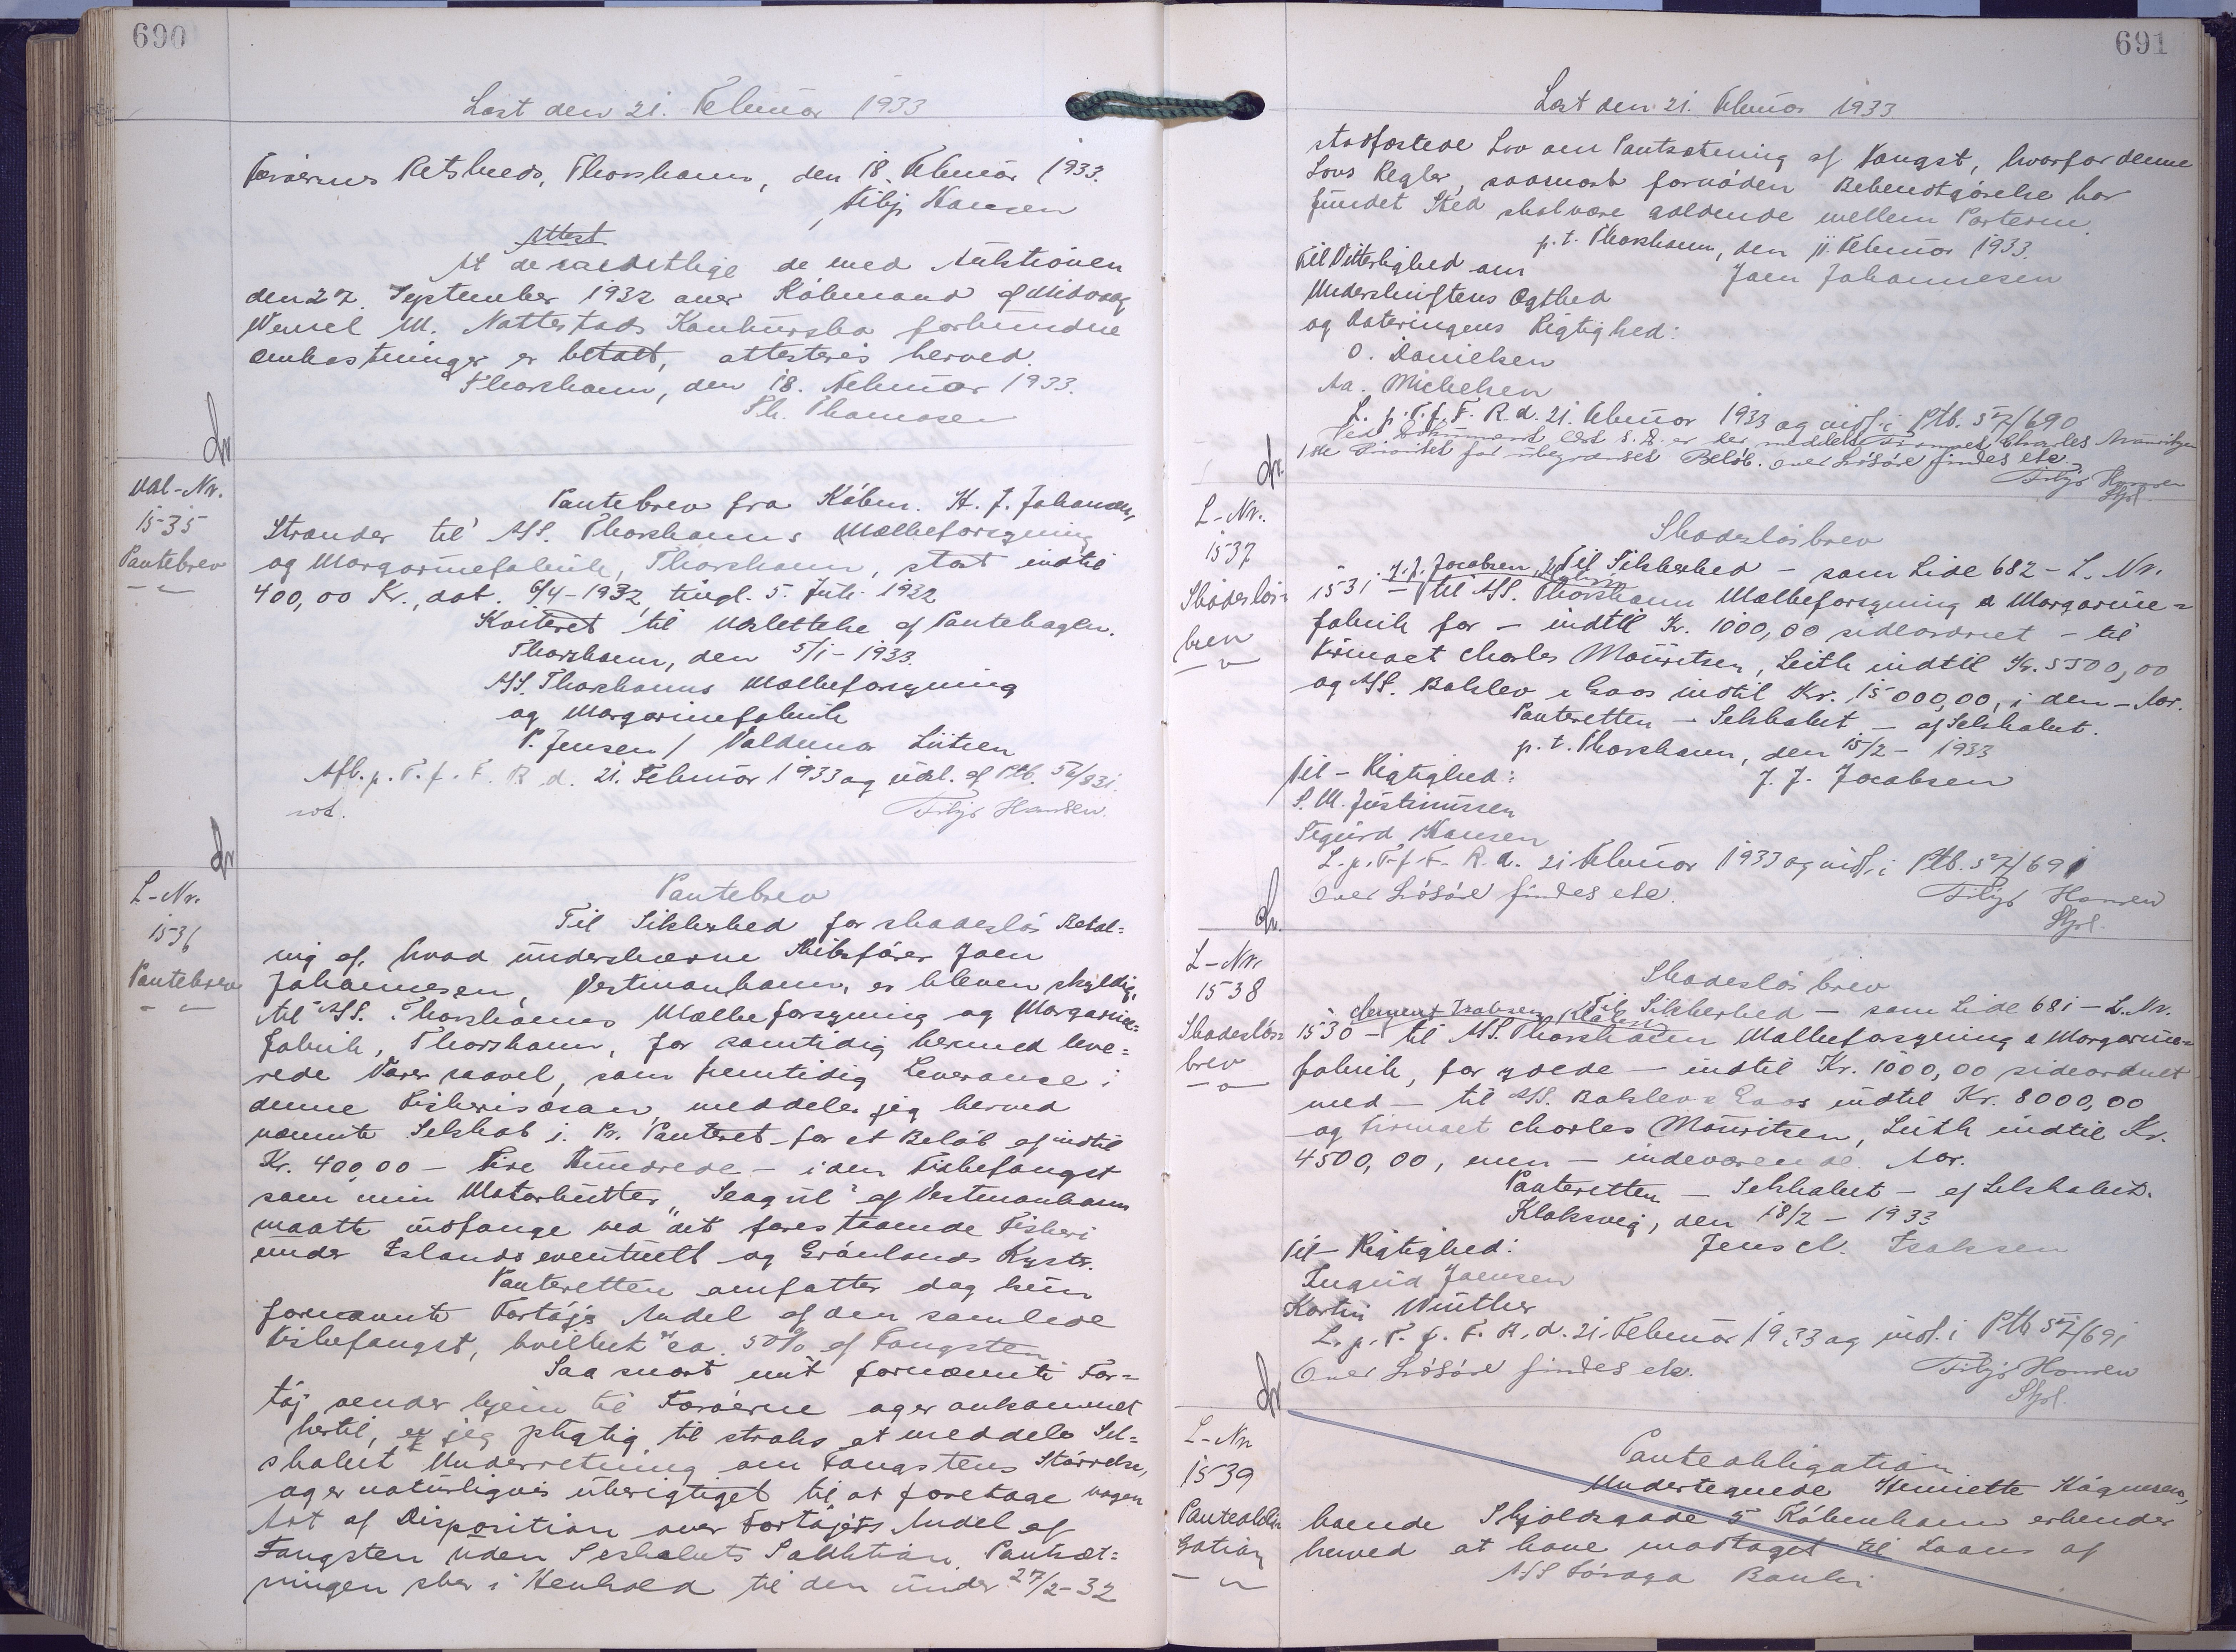 690
Læst den 21. Februar 1933
Færøernes Retskreds, Thorshavn, den 18. Februar 1933.
Filip Hansen
Attest
At de samtlige de med Auktionen
den 27. September 1932 over Købmand af Midvaag
Wenzel M. Nattestads Konkursbo forbundne
Omkostninger er betalt, attesteres herved.
Thorshavn, den 18. Februar 1933.
Th. Thomasen
Udl-Nr.
1535
Pantebrev
Pantebrev fra Købm. H. J. Johansen,
Strænder til A/S. Thorshavns Mælkeforsyning
og Margarinefabrik, Thorshavn, stort indtil
400,00 Kr., dat. 6/4-1932, tingl. 5. Juli 1932
Kviteret til Udslettelse af Pantebogen.
Thorshavn, den 5/1-1933.
A/S. Thorshavns Mælkeforsyning
og Margarinefabrik
P. Jensen / Valdemar Lützen
Afl. p. T. f. F. R d. 21. Februar 1933 og udl. af Ptb. 56/831.
Filip Hansen.
L-Nr.
1536
Pantebrev
Pantebrev
Til Sikkerhed for skadesløs Betal=
ing af, hvad underskrevne Skibsfører Joen
Johannesen, Vestmanhavn, er bleven skyldig,
til A/S. Thorshavns Mælkeforsyning og Margarine=
fabrik, Thorshavn, for samtidig hermed leve=
rede Varer saavel, som fremtidig Leverance i
denne Fiskerisæson, meddeler jeg herved
nævnte Selskab 1. Pr. Panteret for et Beløb af indtil
Kr. 400,00 - Fire Hundrede - i den Fiskefangst
som min Motorkutter "Seagul" af Vestmanhavn
maatte indfange ved det forestaaende Fiskeri
under Islands eventuelt og Grønlands Kyster.
Panteretten omfatter dog kun
fornævnte Fartøjs Andel af den samlede
Fiskefangst, hvilket er ca. 50% af Fangsten
Saa snart mit fornævnte Far=
tøj vender hjem til Færøerne og er ankommet
hertil, er jeg pligtig til straks at meddele Sel=
skabet Underretning om Fangstens Størrelse,
og er naturligvis uberigtiget til at foretage nogen
Art af Disposition over Fartøjets Andel af
Fangsten uden Selskabets Sakktion. Pantsæt=
ningen sker i Henhold til den under 27/2-32
691
Læst den 21. Februar 1933
stadfæstede Lov om Pantsætning af Fangst, hvorfor denne
Lovs Regler, saasnart fornøden Bekendtgørelse har
fundet Sted skal være gældende mellem Parterne.
p. t. Thorshavn, den 11. Februar 1933.
Til Vitterlighed om
Joen Johannesen
Underskriftens Ægthed
og Dateringens Rigtighed:
O. Danielsen
Aa. Michelsen
L. p. T. f. F. R. d. 21. Februar 1933 og indf. i Ptb. 57/690
Ved Dokument læst s. D. er der meddelt Firmaet Charles Mauritzen
1ste Prioritet for ubegrænset Beløb. Over Løsøre findes ete.
Filip Hansen
Skjol.
L-Nr.
1537
Skadesløs=
brev
Skadesløsbrev
J. J. Jacobsen, Til Sikkerhed - som Side 682 - L. Nr.
1531 - til A/S. Thorshavn Mælkeforsyning & Margarine=
fabrik for - indtil Kr. 1000,00 sideordnet - til
Firmaet Charles Mauritsen, Leith indtil Kr. 5500,00
og A/S. Balslev & Goos indtil Kr. 15000,00, i den - Aar.
Panteretten - Selskabet - af Selskabet.
p. t. Thorshavn, den 15/2 - 1933
Til - Rigtighed:
J. J. Jacobsen
S. M. Justinussen
Sigurd Hansen
L. p. T. f. F. R. d. 21 Februar 1933 og indf. i Ptb. 57/691
Over Løsøre findes ete.
Filip Hansen
Skjol.
L-Nr.
1538
Skadesløs=
brev
Skadesløsbrev
Clement Isaksen, Til Sikkerhed - som Side 681 - L. Nr.
1530 - til A/S. Thorshavn Mælkeforsyning & Margarine=
fabrik, for ydede - indtil Kr. 1000,00 sideordnet
med - til A/S. Balslev & Goos indtil Kr. 8000,00
og Firmaet Charles Mauritsen, Leith indtil Kr.
4500,00, men - indeværende Aar.
Panteretten - Selskabet - af Selskabet.
Klaksvig, den 18/2 - 1933
Til - Rigtighed:
Jens Cl. Isaksen
Ingrid Joensen
Katrin Winther
L. p. T. f. F. R. d. 21. Februar 1933 og indf. i Ptb 57/691
Over Løsøre findes ete.
Filip Hansen
Skjol.
L-Nr
1539
Panteobli
gation
Panteobligation
Undertegnede Henriette Høgnesen,
boende Skjoldsgade 5 København erkender
herved at have modtaget til Laans af
A/S Føroya Banki